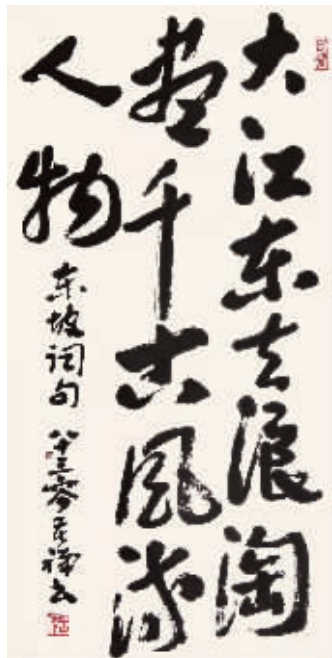 大江东去浪淘
盡千古風流
人物
东坡词句 八十三 苦禅书